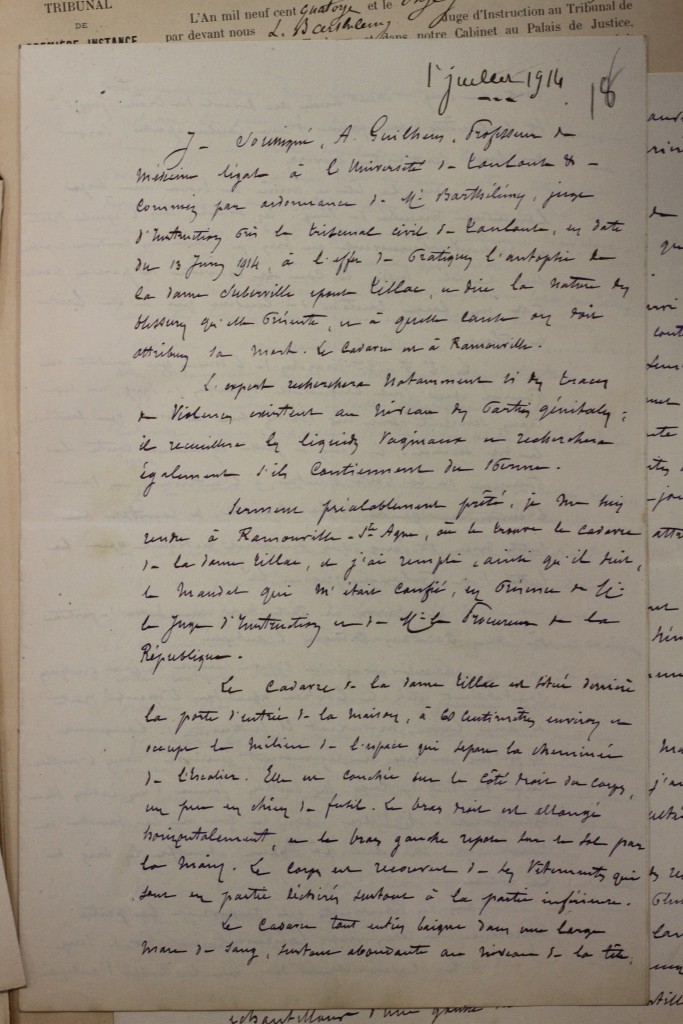 TRIBUNAL
DE
PREMIÈRE INSTANCE
L'An mil neuf cent quatorze et le onze Juge d'Instruction au Tribunal de
par devant nous L. Barthélemy dans notre Cabinet au Palais de Justice,
1er juillet 1914.
18
Je soussigné, A. Guilhem, Professeur de
Médecine légale à l'Université de Toulouse &
commis par ordonnance de Mr Barthélémy, juge
d'Instruction près le tribunal civil de Toulouse, en date
du 13 Juin 1914, à l'effet de pratiquer l'autopsie de
la dame Suberville épouse Tillac, en dire la nature des
blessures qu'elle présente, et à quelle cause on doit
attribuer sa mort. Le cadavre est à Ramonville.
L'expert recherchera notamment si des traces
de violences existent au niveau des parties génitales ;
il recueillera les liquides vaginaux et recherchera
également s'ils contiennent du sperme.
Serment préalablement prêté, je me suis
rendu à Ramonville-Ste Agne, où se trouve le cadavre
de la dame Tillac, et j'ai rempli, ainsi qu'il suit,
le mandat qui m'était confié, en présence de Mr
le Juge d'Instruction et de Mr le Procureur de la
République.
Le cadavre de la dame Tillac est située derrière
la porte d'entrée de la maison, à 60 centimètres environ et
occupe le milieu de l'espace qui sépare la cheminée
de l'escalier. Elle est couchée sur le côté droit du corps,
un peu en chien de fusil. Le bras droit est allongé
horizontalement, et le bras gauche repose sur le sol par
la main. Le corps est recouvert de ses vêtements qui
sont en partie déchirés surtout à la partie inférieure.
Le cadavre tout entier baigne dans une large
mare de sang, surtout abondante au niveau de la tête.